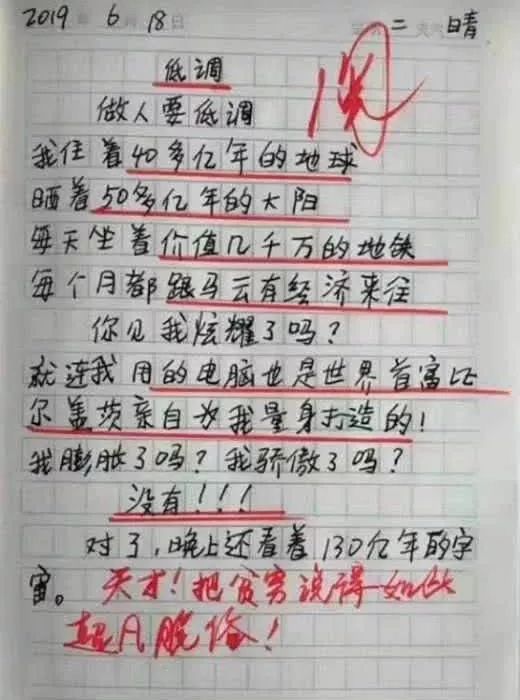 2019 6 18日 二 晴
低调
阅
做人要低调
我住着40多亿年的地球
晒着50多亿年的太阳
每天坐着价值几千万的地铁
每个月都跟马云有经济来往
你见我炫耀了吗?
就连我用的电脑也是世界首富比
尔盖茨亲自为我量身打造的!
我膨胀了吗?我骄傲了吗?
没有!!!
对了,晚上还看着130亿年的宇
宙。天才!把贫穷说得如此
超凡脱俗!